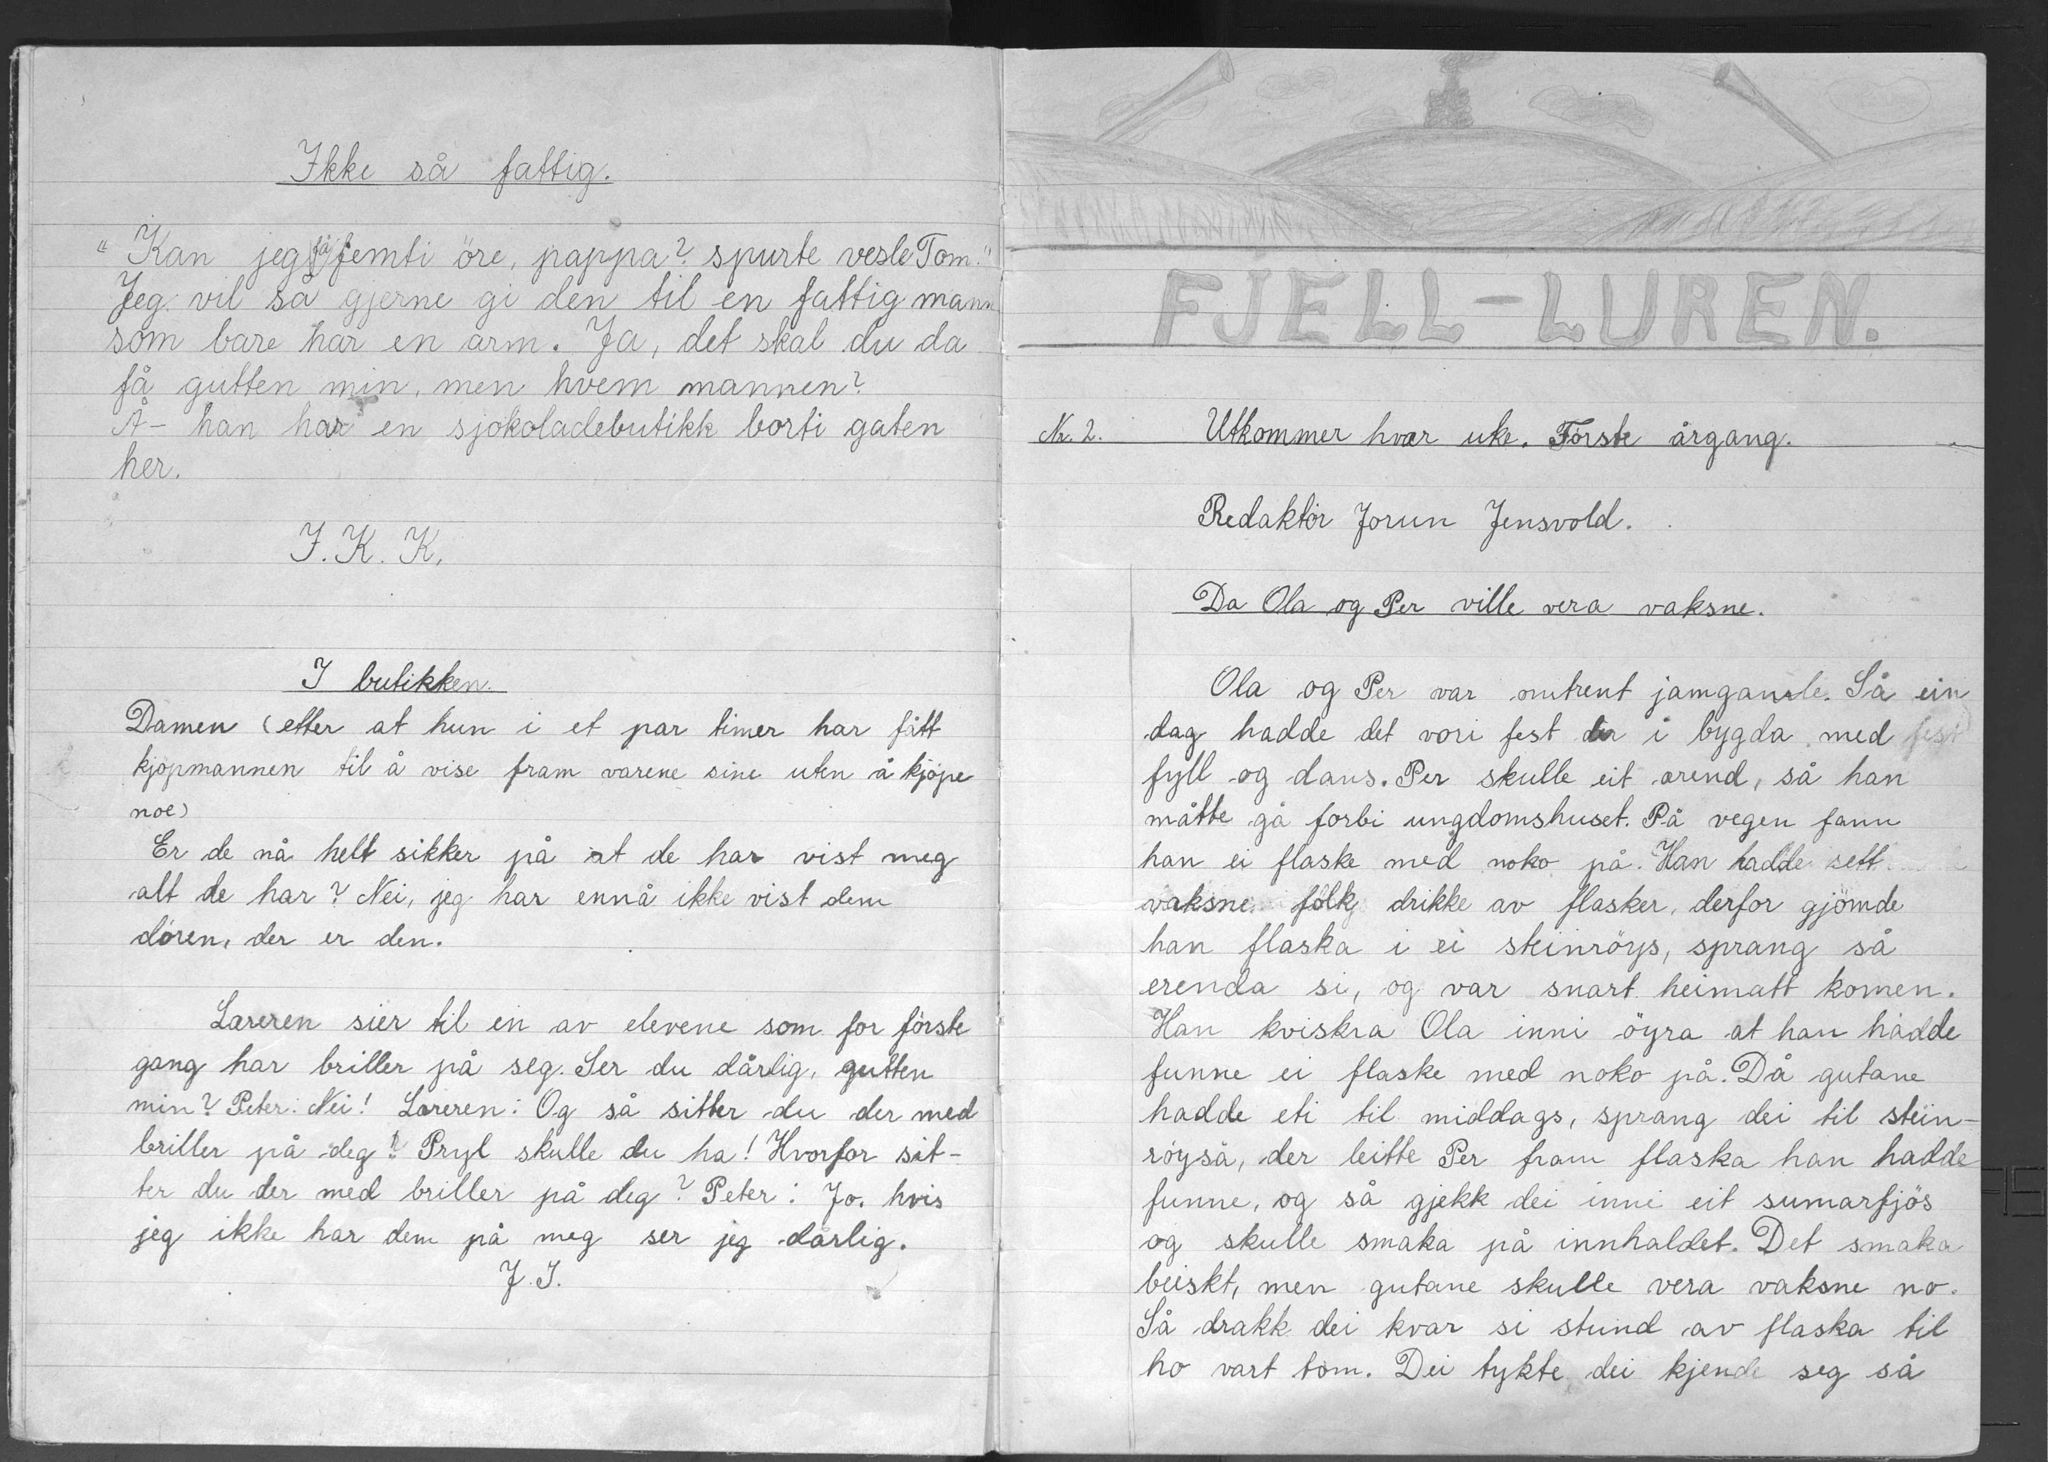 Ikke så fattig.
"Kan jeg få femti öre, pappa? spurte vesle Tom."
Jeg vil så gjerne gi den til en fattig mann
som bare har en arm. Ja, det skal du da
få gutten min, men hvem mannen?
Å- han har en sjokoladebutikk borti gaten
her.
J. K. K.
I butikken.
Damen (etter at hun i et par timer har fått
kjøpmannen til å vise fram varene sine uten å kjøpe
noe)
Er de nå helt sikker på at de har vist meg
alt de har? Nei, jeg har ennå ikke vist dem
døren, der er den.
Læreren sier til en av elevene som for förste
gang har briller på seg. Ser du dårlig, gutten
min? Peter: Nei! Læreren: Og så sitter du der med
briller på deg? Pryl skulle du ha! Hvorfor sit-
ter du der med briller på deg? Peter: Jo. hvis
jeg ikke har dem på meg ser jeg dårlig.
J. J.
FJELL-LUREN.
Nr. 2. Utkommer hver uke. Förste årgang.
Redaktör Jorun Jensvold.
Da Ola og Per ville vera vaksne.
Ola og Per var omtrent jamgamle. Så ein
dag hadde det vori fest der i bygda med
fyll og dans. Per skulle eit ærend, så han
måtte gå forbi ungdomshuset. På vegen fann
han ei flaske med noko på. Han hadde sett
vaksne folk drikke av flasker, derfor gjömde
han flaska i ei steinröys, sprang så
erenda si, og var snart heimatt komen.
Han kviskra Ola inni öyra at han hadde
funne ei flaske med noko på. Då gutane
hadde eti til middags, sprang dei til stein-
röyså, der leitte Per fram flaska han hadde
funne, og så gjekk dei inni eit sumarfjös
og skulle smaka på innhaldet. Det smaka
beiskt, men gutane skulle vera vaksne no.
Så drakk dei kvar si stund av flaska til
ho vart tom. Dei tykte dei kjende seg så